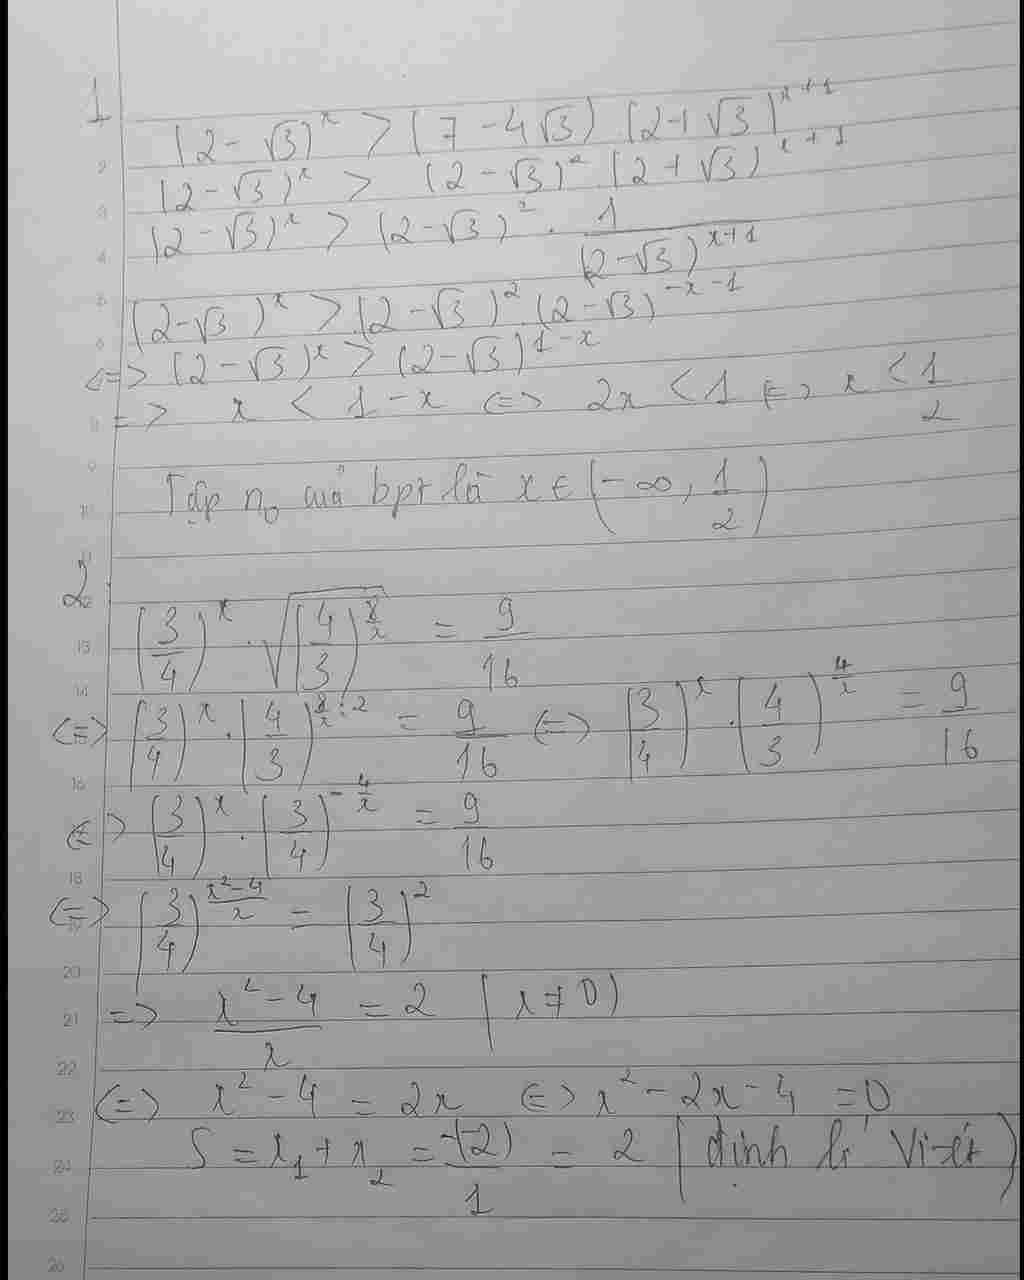 1
(2 - √3)^x > (7 - 4√3) (2 + √3)^{x+1}
(2 - √3)^x > (2 - √3)^2 (2 + √3)^{x+1}
(2 - √3)^x > (2 - √3)^2 . 1/(2 - √3)^{x+1}
(2 - √3)^x > (2 - √3)^2 (2 - √3)^{-x-1}
<=> (2 - √3)^x > (2 - √3)^{1-x}
=> x < 1 - x <=> 2x < 1 <=> x < 1/2
Tập n₀ của bpt là x ∈ (-∞, 1/2)
2
(3/4)^x . √((4/3)^{8/x}) = 9/16
<=> (3/4)^x . (4/3)^{8/x : 2} = 9/16 <=> (3/4)^x . (4/3)^{4/x} = 9/16
<=> (3/4)^x . (3/4)^{-4/x} = 9/16
<=> (3/4)^{(x²-4)/x} = (3/4)^2
=> (x² - 4)/x = 2 (x ≠ 0)
<=> x² - 4 = 2x <=> x² - 2x - 4 = 0
S = x₁ + x₂ = -(-2)/1 = 2 (định lí Vi-ét)